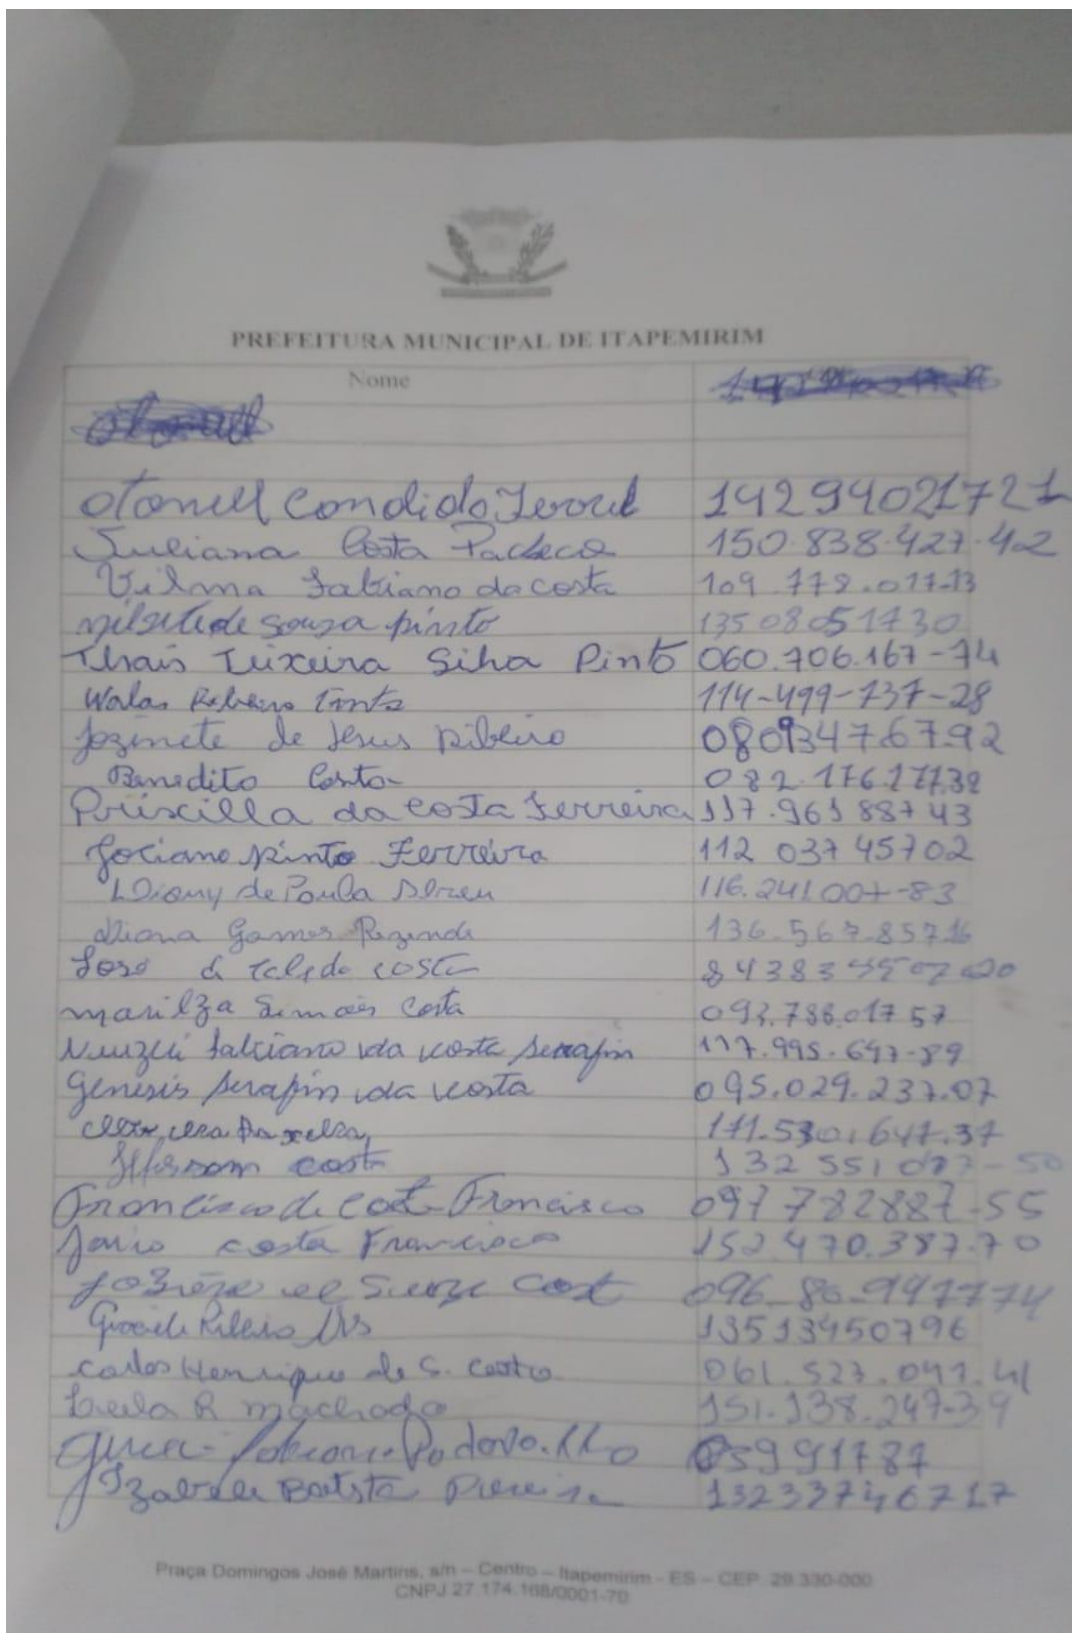 PREFEITURA MUNICIPAL DE ITAPEMIRIM
Nome
Otonell Condido 14294021721
Juliana Costa Pacheco 150.838.427-42
Vilma Fabiano da costa 109.772.017-13
de souza pinto 13508051730
Thais Teixeira Silva Pinto 060.706.167-74
Walas Ribeiro 114-499-737-28
Jozinete de Jesus Ribeiro 08093476792
Benedito Costa 082.176.177.32
Priscilla da Costa Ferreira 117.96188743
Jociano Pinto Ferreira 112 037 45702
de Paula Abreu 116.241.007-83
Diana Gomes Rezende 136.567.85716
José costa
marilza Simões Costa 093.786.017 57
Fabiano da costa Serafin 117.995.647-89
Genesis Serafin da costa 095.029.237.07
171.530.647.37
Jefersom costa 132 551 077-50
Francisco da Costa Francisco 097 782887-55
costa Francisco 152.470.387-70
Costa
Ribeiro 13513450796
Carlos Henrique de S. Costa 061.527.097.41
R machado 151.138.247-39
05991787
Izabele Batista 13233746717
Praça Domingos José Martins, s/n – Centro – Itapemirim - ES – CEP. 29.330-000
CNPJ 27.174.168/0001-70